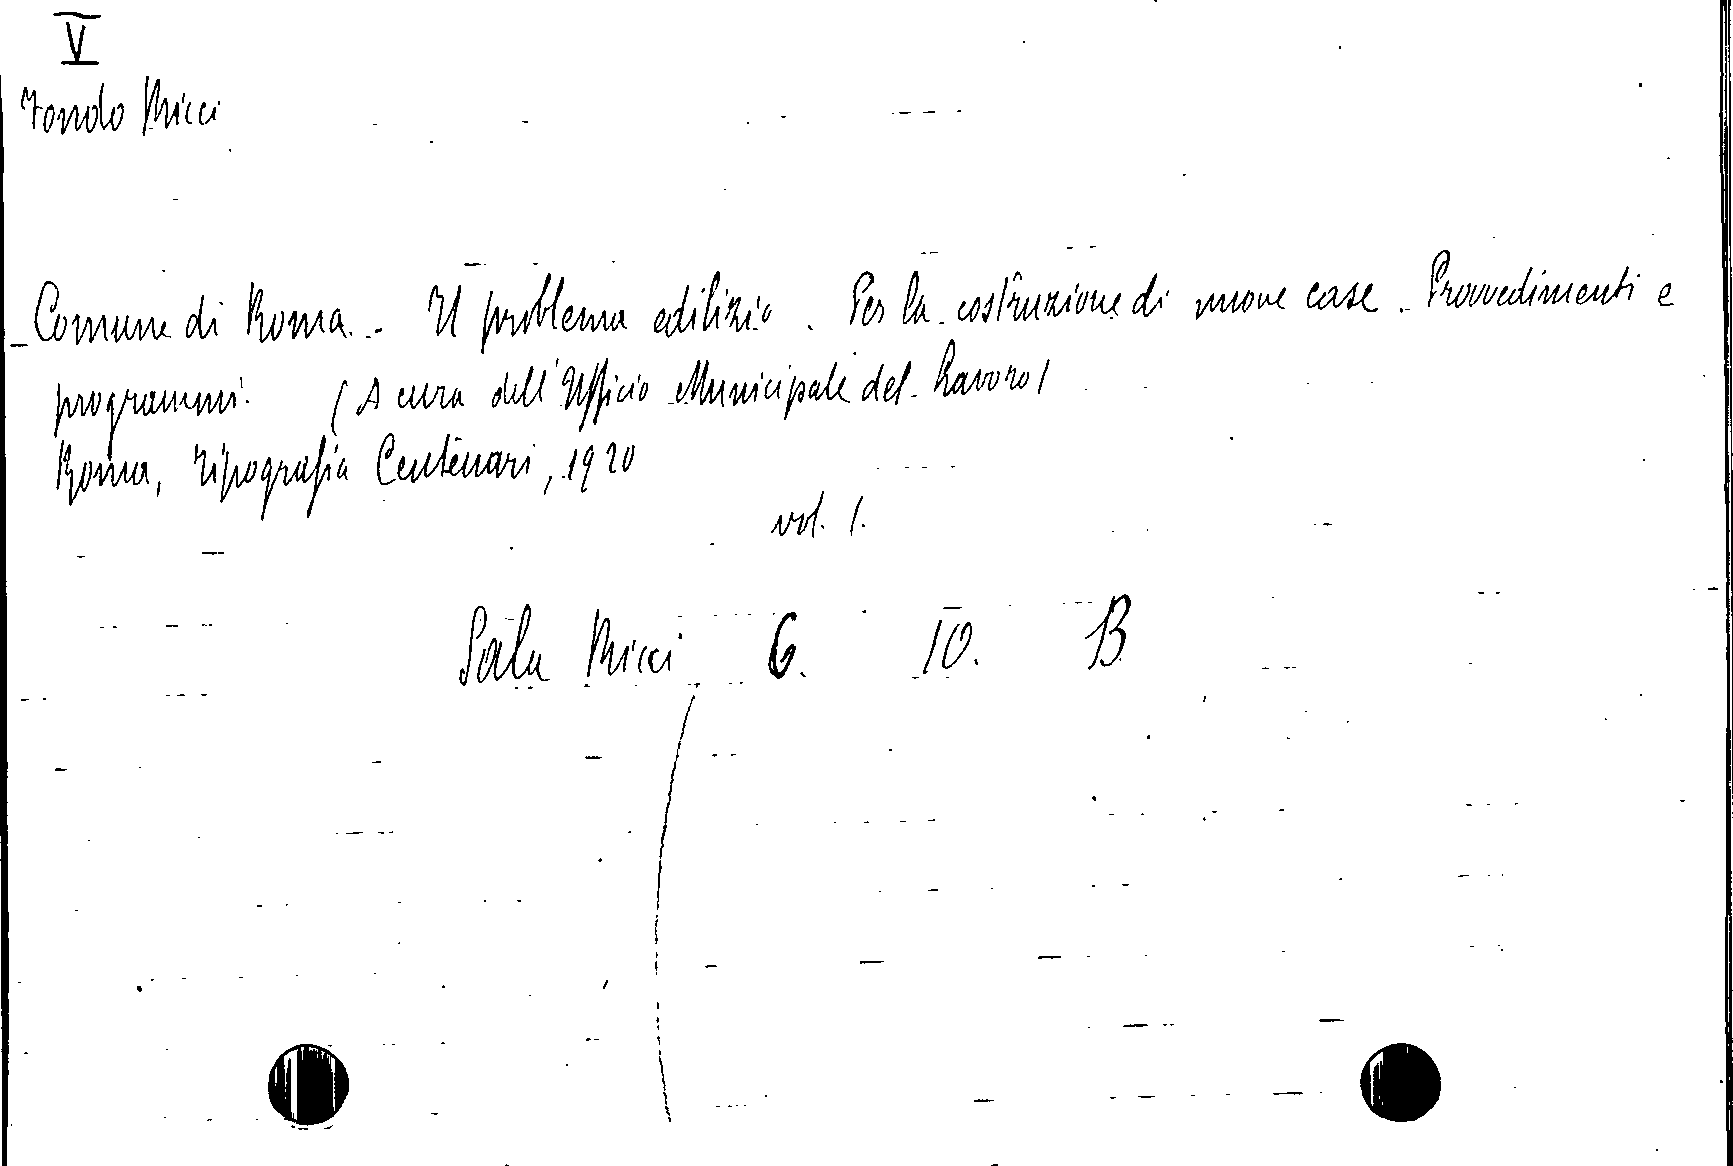 V
Fondo Ricci
Comune di Roma. - Il problema edilizio. Per la costruzione di nuove case. Provvedimenti e
programmi. (A cura dell'Ufficio Municipale del Lavoro)
Roma, Tipografia Centenari, 1920
vol. 1.
Sala Ricci 6. 10. B